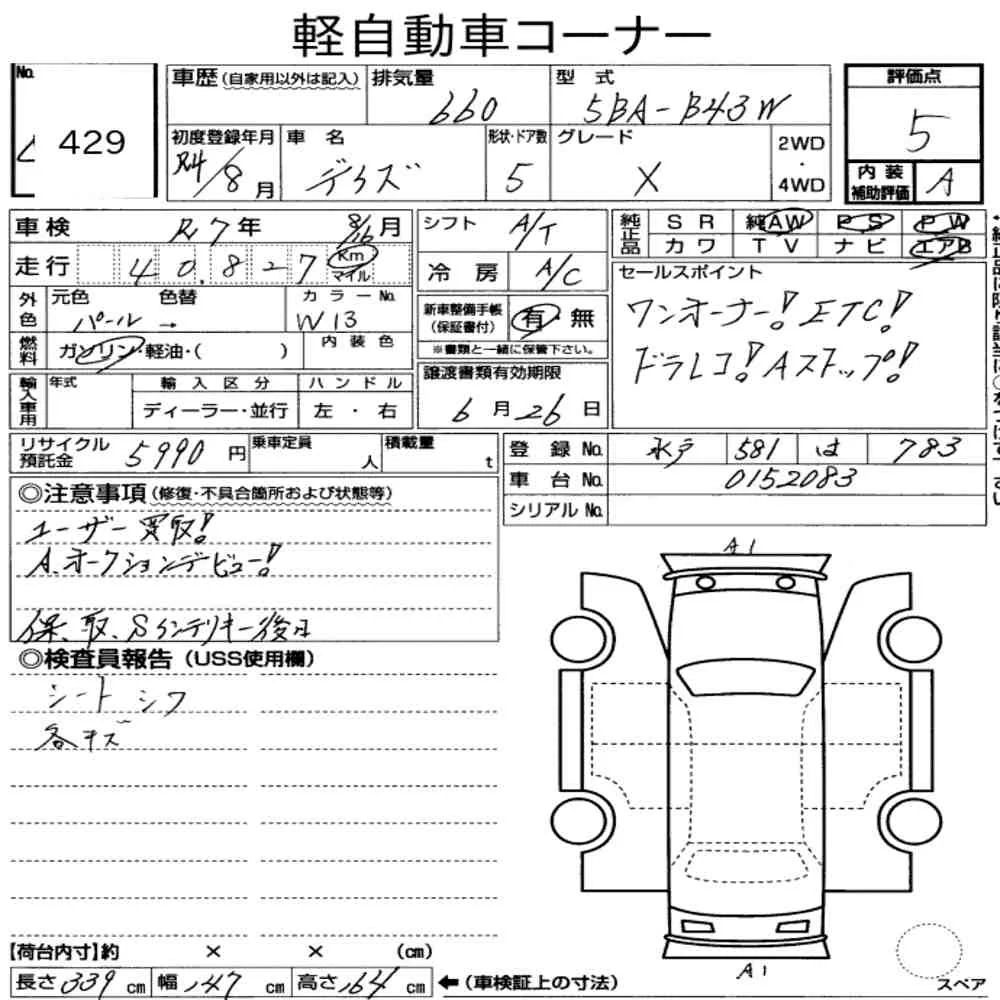 軽自動車コーナー
No.
429
車歴(自家用以外は記入)
排気量
660
型式
5BA-B43W
評価点
5
初度登録年月
R4/8月
車名
デイズ
形状・ドア数
5
グレード
X
2WD
・
4WD
内装
補助評価
A
車検
R7年 8/16月
シフト
A/T
純正品
SR
純AW
PS
PW
カワ
TV
ナビ
エアB
走行
40,827
Km
マイル
冷房
A/C
セールスポイント
ワンオーナー! ETC!
ドラレコ! Aストップ!
外色
元色
色替
パール →
カラーNo.
W13
新車整備手帳
(保証書付)
有 無
※書類と一緒に保管下さい。
燃料
ガソリン・軽油・( )
内装色
輸入車用
年式
輸入区分
ディーラー・並行
ハンドル
左・右
譲渡書類有効期限
6月26日
リサイクル
預託金
5990円
乗車定員
人
積載量
t
登録No.
581
は
783
車台No.
0152083
シリアルNo.
◎注意事項(修復・不具合箇所および状態等)
ユーザー買取!
A.オークションデビュー!
保、取、Sインテリキー後日
◎検査員報告(USS使用欄)
シート シワ
各キズ
A1
A1
【荷台内寸】約 × × (cm)
長さ339cm
幅147cm
高さ164cm
←(車検証上の寸法)
スペア